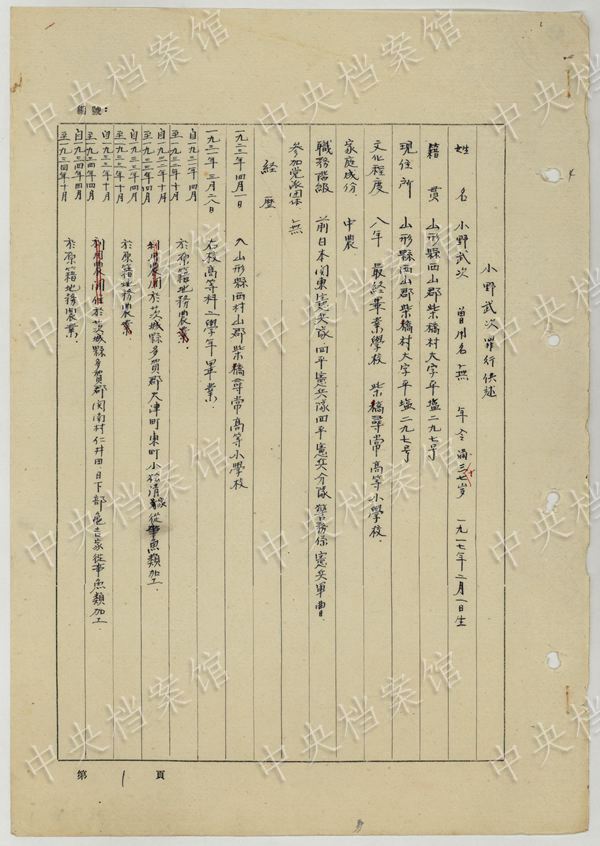 編號：
小野武次罪行供述
姓 名 小野武次 曾用名 無 年令 滿三十七岁 一九一七年二月一日生
籍 貫 山形縣西山郡柴橋村大字平塩二九七号
現住所 山形縣西山郡柴橋村大字平塩二九七号
文化程度 八年 最終畢業學校 柴橋尋常高等小學校.
家庭成份 中農
職務階級 前日本関東憲兵隊四平憲兵隊四平憲兵分隊警務係憲兵軍曹
参加党派团体 無
経 歴
一九二三年四月一日 入山形縣西村山郡柴橋尋常高等小學校
一九三一年三月二八日 右校高等科二學年畢業.
自一九三一年四月
至一九三二年十月 於原籍地務農業.
自一九三二年十月
至一九三三年四月 利用農閑於茨城縣多賀郡大津町東町小松清家從事魚類加工.
自一九三三年四月
至一九三三年十月 於原籍地務農業
自一九三三年十月
至一九三四年四月 利用農閑 於茨城縣多賀郡関南村仁井田日下部亀吉家從事魚類加工.
自一九三四年四月
至一九三四年十月 於原籍地務農業.
第 1 頁
中央档案馆
中央档案馆
中央档案馆
中央档案馆
中央档案馆
中央档案馆
中央档案馆
中央档案馆
中央档案馆